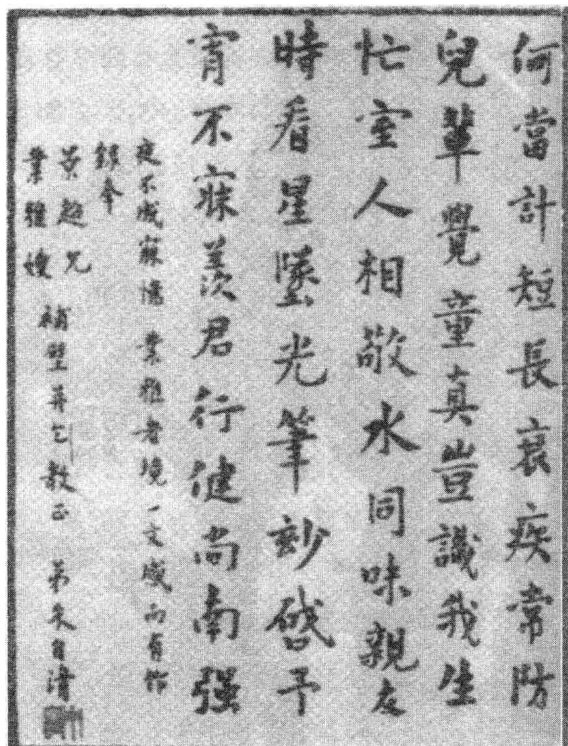 何當計短長衰疾常防
兒輩覺童真豈識我生
忙室人相敬水同味親友
時看星墜光筆妙啓予
宵不寐羨君行健尚南强
夜不成寐憶 業雅老境一文感而有作
錄奉
景超兄
業雅嫂 補壁并乞教正 弟朱自清